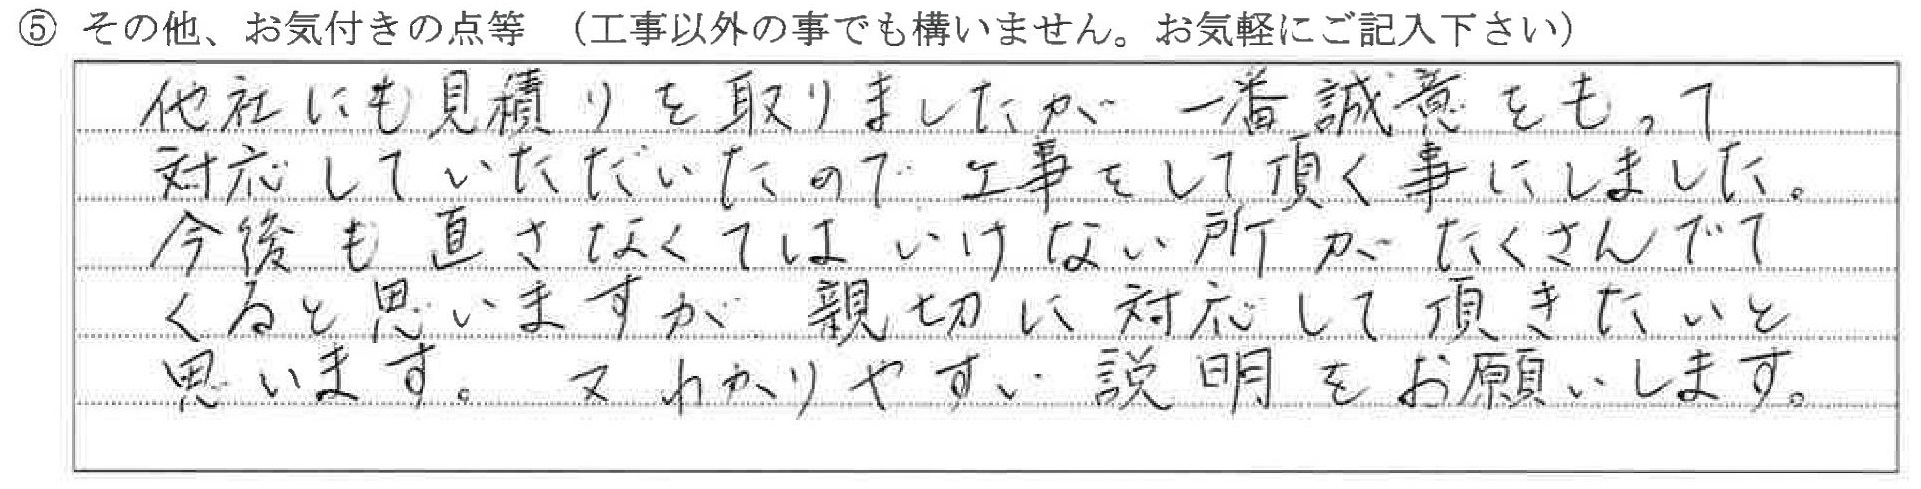 ⑤ その他、お気付きの点等 （工事以外の事でも構いません。お気軽にご記入下さい）
他社にも見積りを取りましたが 一番誠意をもって
対応していただいたので 工事をして頂く事にしました。
今後も直さなくてはいけない所がたくさんでて
くると思いますが 親切に対応して頂きたいと
思います。 又わかりやすい説明をお願いします。